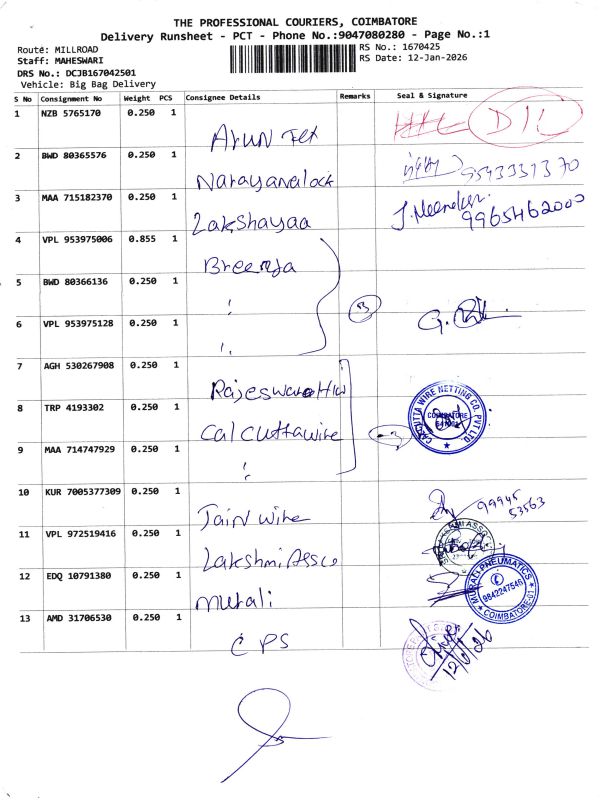 THE PROFESSIONAL COURIERS, COIMBATORE
Delivery Runsheet - PCT - Phone No.:9047080280 - Page No.:1
Route: MILLROAD
RS No.: 1670425
Staff: MAHESWARI
RS Date: 12-Jan-2026
DRS No.: DCJB167042501
Vehicle: Big Bag Delivery
S No Consignment No Weight PCS Consignee Details Remarks Seal & Signature
1 NZB 5765170 0.250 1 Arun Tex DIL
2 BWD 80365576 0.250 1 Narayanalock
3 MAA 715182370 0.250 1 Lakshayaa
4 VPL 953975006 0.855 1 Breenja
5 BWD 80366136 0.250 1 3
6 VPL 953975128 0.250 1
7 AGH 530267908 0.250 1
8 TRP 4193302 0.250 1 Calcuttawire CALCUTTA WIRE NETTING CO. PVT LTD. COIMBATORE
9 MAA 714747929 0.250 1 3
10 KUR 7005377309 0.250 1 Jain Wire 99945 53563
11 VPL 972519416 0.250 1 Lakshmi Assco
12 EDQ 10791380 0.250 1 Murali MURALI PNEUMATICS 9842247546 COIMBATORE-01
13 AMD 31706530 0.250 1 CPS 12/1/26